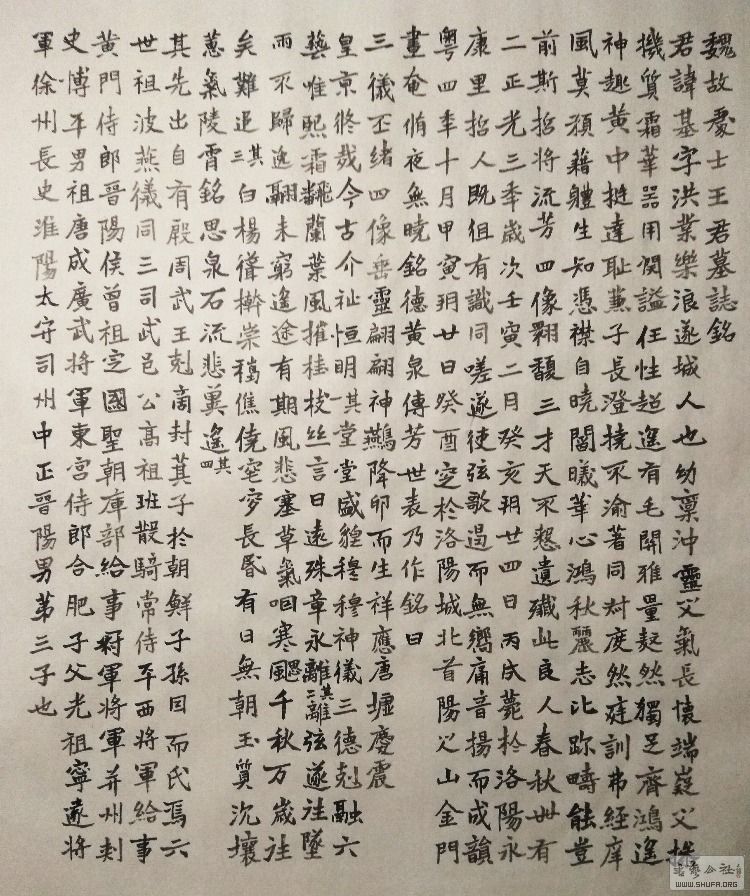 魏故處士王君墓誌銘
君諱基字洪業樂浪遂城人也幼稟沖靈之氣長懷端嶷之操
機質霜華器用閑謐任性超遙有毛開雅量超然獨足齊鴻遙
神趣黃中挺達恥兼子長澄撓不渝著同尌度然庭訓弗經庠
風莫預藉體生知憑襟自曉闇曦華心鴻秋麗志比跡疇能豈
前斯哲將流芳四像翱馥三才天不憖遺殲此良人春秋卌有
二正光三年歲次壬寅二月癸亥朔廿四日丙戌薨於洛陽永
康里哲人既徂有識同嗟遂使弦歌遏而無嚮痛音揚而成韻
粵四年十月甲寅朔廿日癸酉窆於洛陽城北首陽之山金門
晝奄脩夜無曉銘德黃泉傳芳世表乃作銘曰
三儀丕緒四像垂靈翩翩神鷰降卵而生祥應唐墟慶震
皇京終哉今古介祉恒明其一堂堂盛貌穆穆神儀三德剋融六
藝唯熙霜飜蘭葉風摧桂枝絲言日遠殊章永離其二離弦遂往墜
雨不歸逸翮未窮遙途有期風悲塞草氣咽寒颸千秋万歲往
矣難追其三白楊聳榦棠穚僬僥窀穸長昏有日無朝玉質沉壤
蕙氣陵霄銘思泉石流悲蒕遙其四
其先出自有殷周武王剋商封箕子於朝鮮子孫因而氏焉六
世祖波燕儀同三司武邑公高祖班散騎常侍平西將軍給事
黃門侍郎晉陽侯曾祖定國聖朝庫部給事冠軍將軍并州刺
史博平男祖唐成廣武將軍東宮侍郎合肥子父光祖寧遠將
軍徐州長史淮陽太守司州中正晉陽男第三子也
書藝公社
WWW.SHUFA.ORG